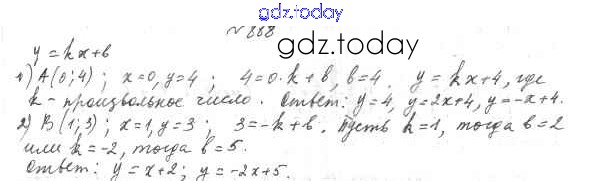 gdz.today
№ 888
gdz.today
y = kx + b
1) A(0;4); x=0, y=4; 4=0·k+b, b=4. y=kx+4, где
k - произвольное число. Ответ: y=4, y=2x+4, y=-x+4.
2) B(1;3); x=1, y=3; 3=-k+b. Пусть k=1, тогда b=2
или k=-2, тогда b=5.
Ответ: y=x+2; y=-2x+5.